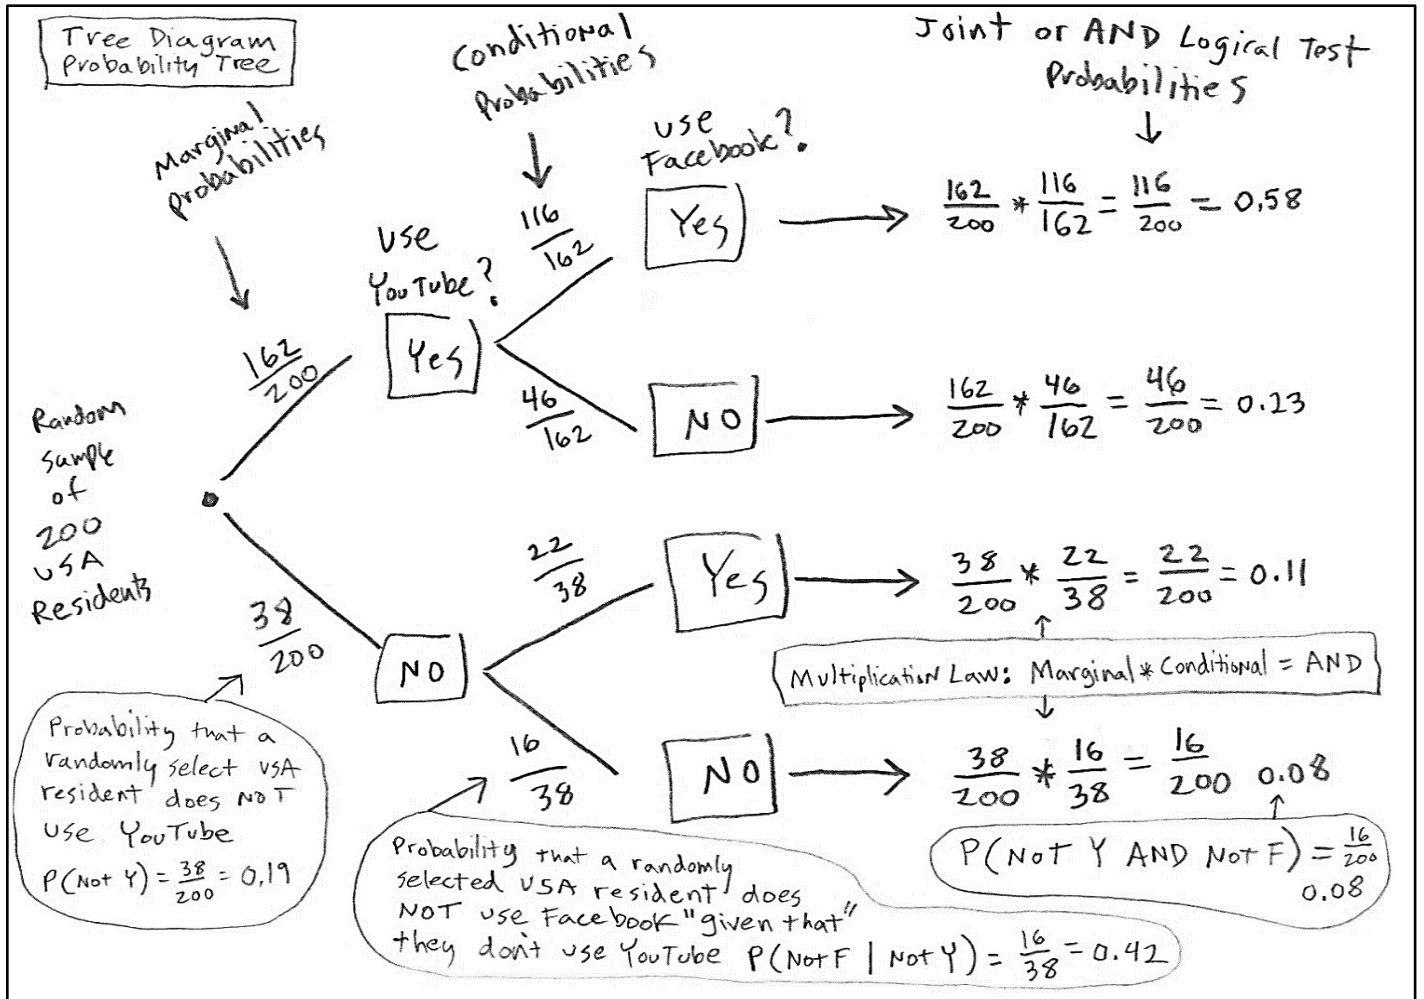 Tree Diagram
Probability Tree
Marginal
Probabilities
Conditional
Probabilities
Joint or AND Logical Test
Probabilities
use
Facebook?
use
YouTube?
Random
Sample
of
200
USA
Residents
162/200
Yes
116/162
Yes
162/200 * 116/162 = 116/200 = 0.58
46/162
NO
162/200 * 46/162 = 46/200 = 0.23
38/200
NO
22/38
Yes
38/200 * 22/38 = 22/200 = 0.11
Multiplication Law: Marginal * Conditional = AND
16/38
NO
38/200 * 16/38 = 16/200 0.08
Probability that a
randomly select USA
resident does NOT
use YouTube
P(Not Y) = 38/200 = 0.19
Probability that a randomly
selected USA resident does
NOT use Facebook "given that"
they don't use YouTube P(Not F | Not Y) = 16/38 = 0.42
P(Not Y AND Not F) = 16/200
0.08